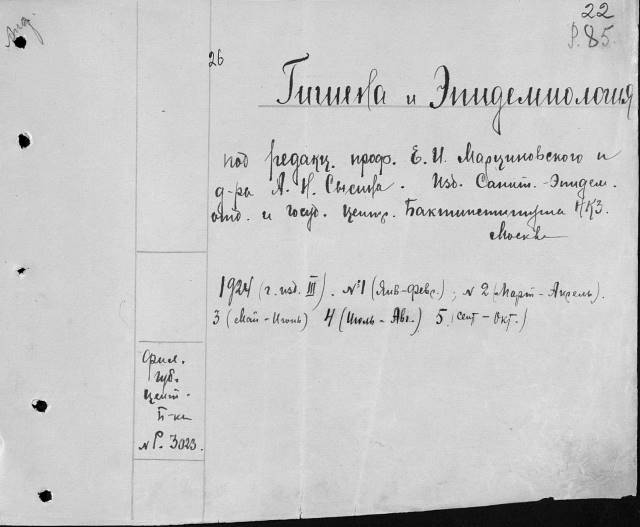 22
Р.85.
26
Гигиена и Эпидемиология
под редакц. проф. Е. И. Марциновского и
д-ра А. Н. Сысина. Изд. Санит.-Эпидем.
отд. и Госуд. Центр. Бактинститута НКЗ.
Москва
1924 (г. изд. III). №1 (Янв-Февр.); № 2 (Март - Апрель).
3 (Май - Июнь) 4 (Июль - Авг.) 5 (Сент - Окт.)
Фил.
Губ.
Цент.
Б-ки
№ Р. 3023.